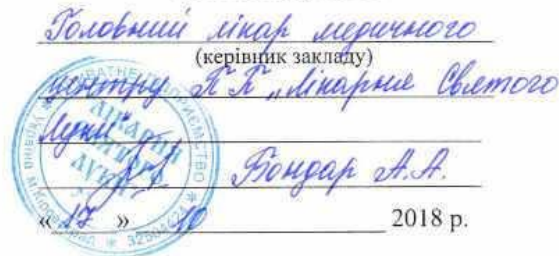 Головний лікар медичного
(керівник закладу)
центру П.П. „Лікарня Святого
Луки"
Бондар А.А.
« 17 » 10 2018 р.
ЛІКАРНЯ
СВЯТОГО
ЛУКИ